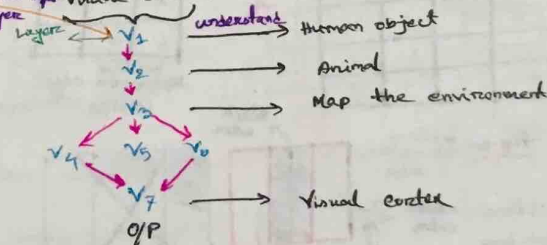 Layer
V1 understand Human object
V2 Animal
V3 Map the environment
V4 V5 V6
V7 Visual cortex
O/P